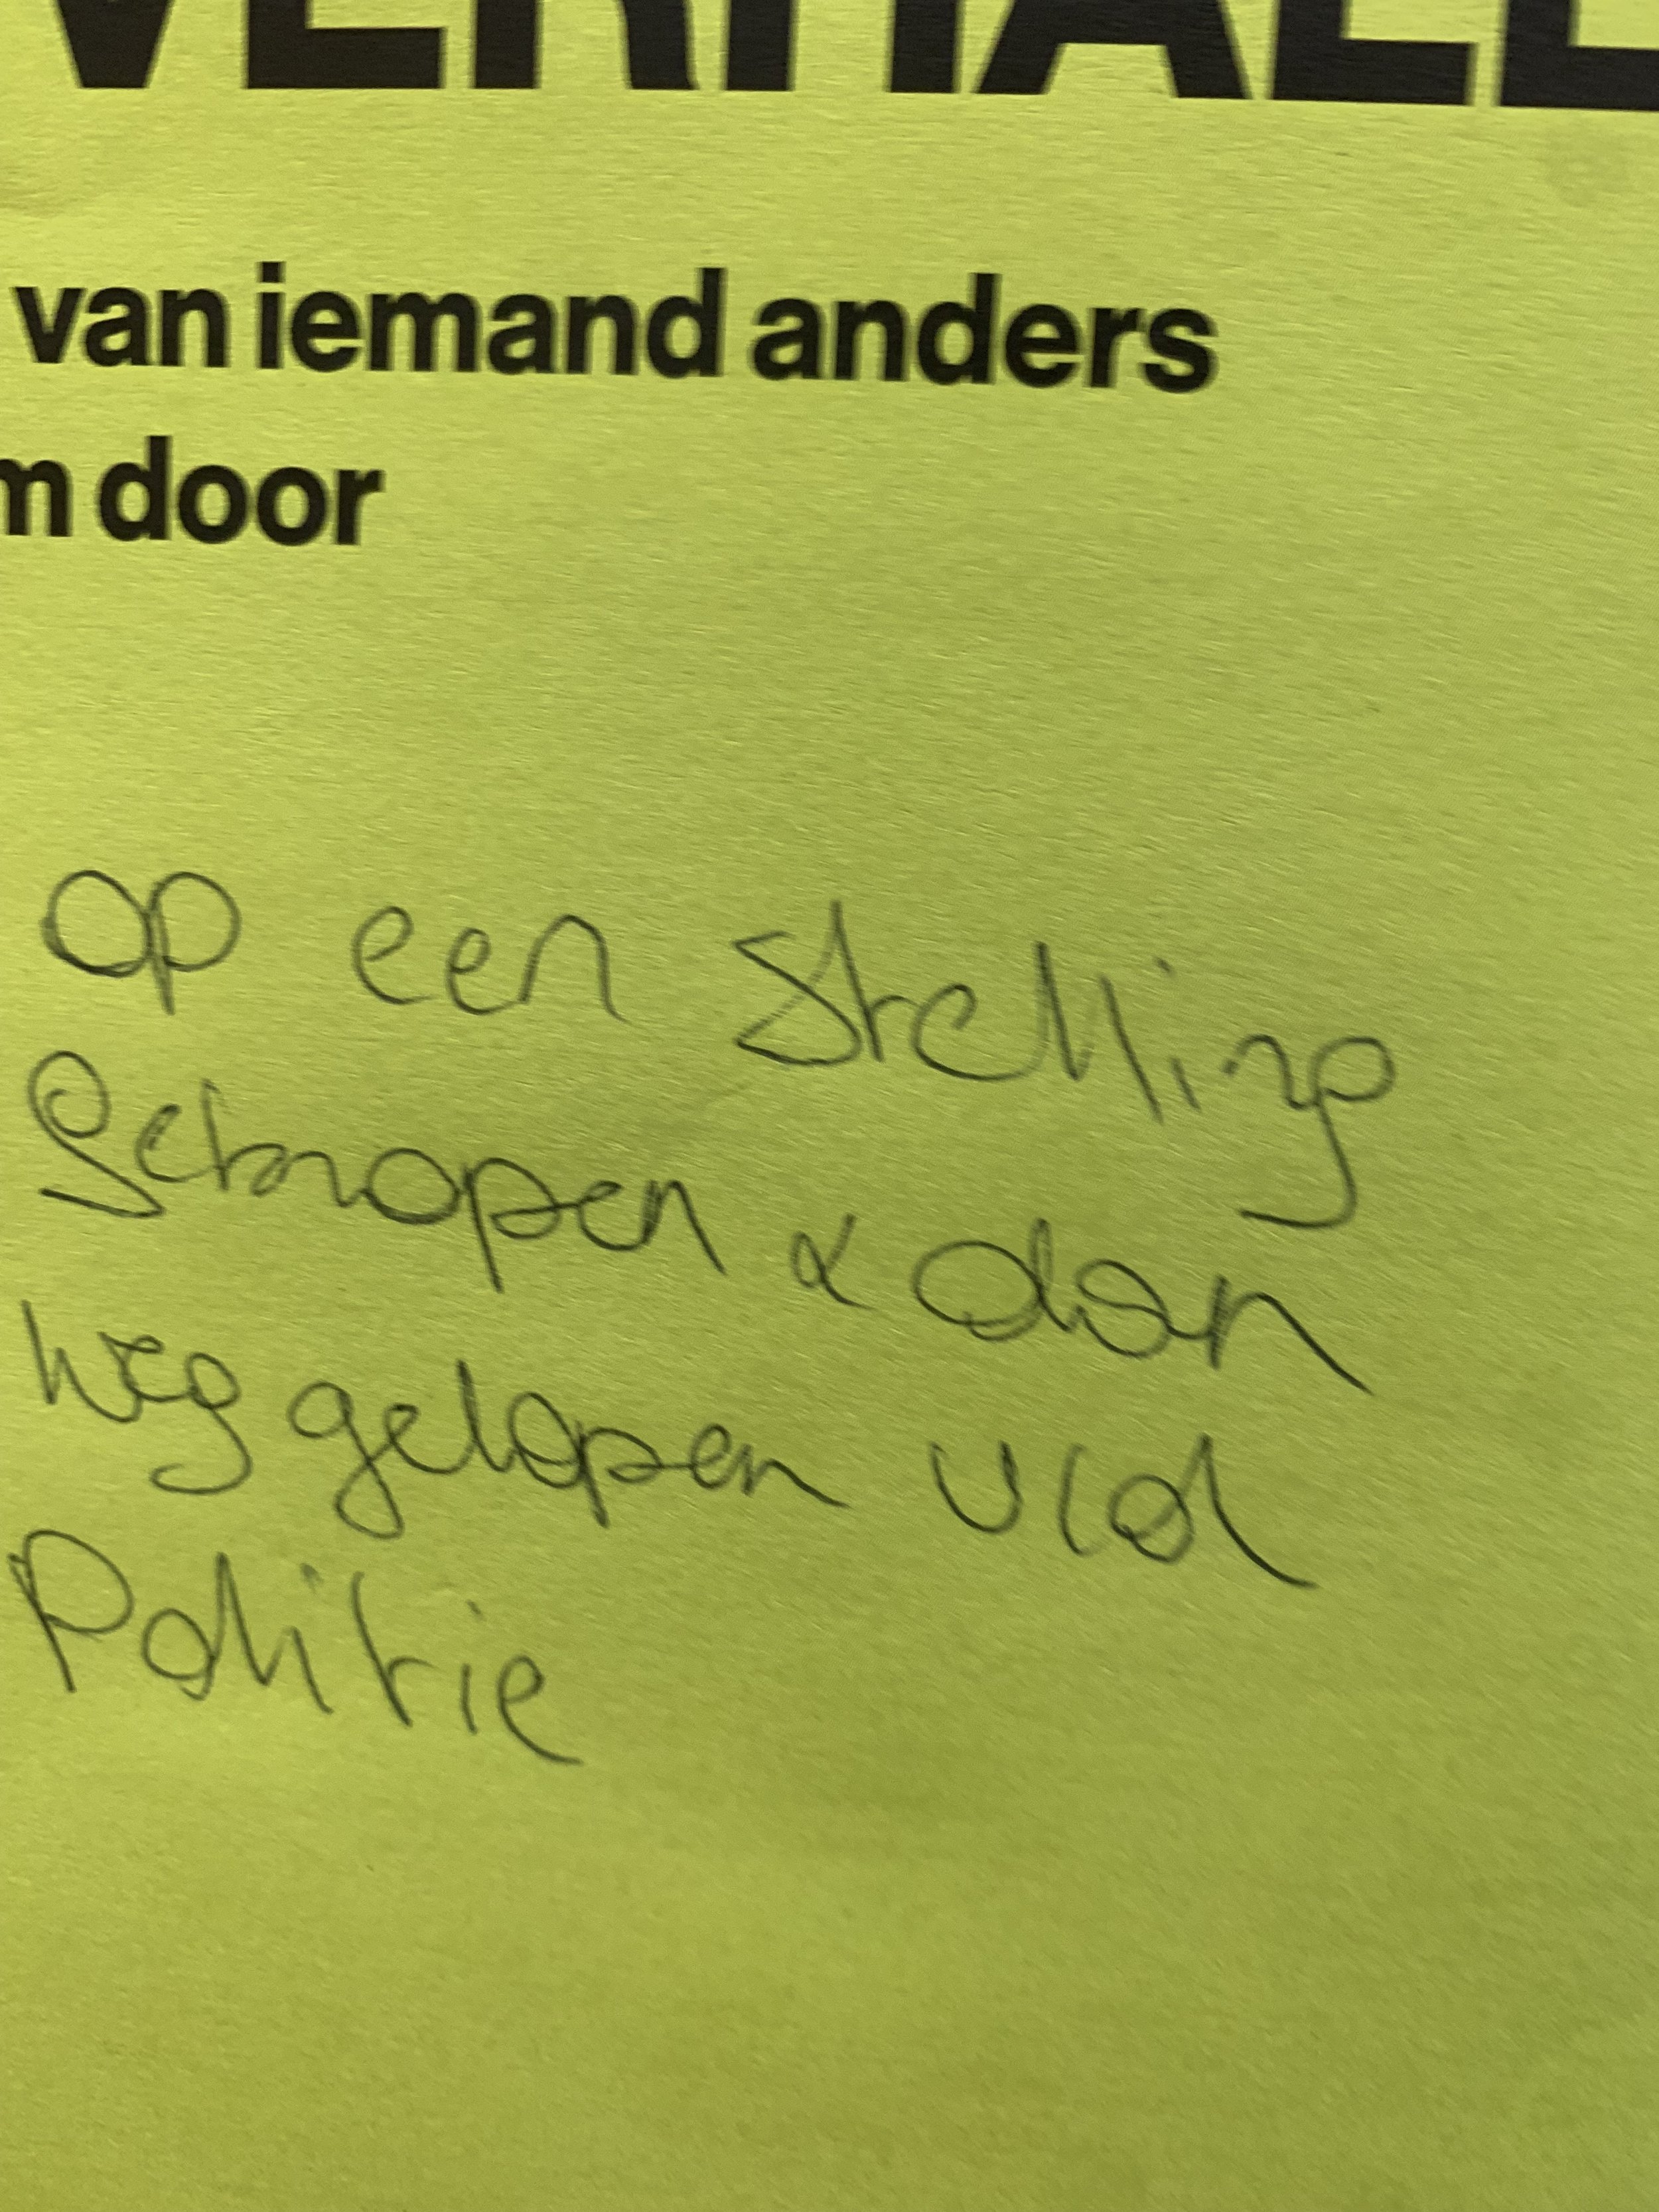 VERHALE
van iemand anders
m door
op een stelling
geknopen & dan
weg gelopen v/d
Politie